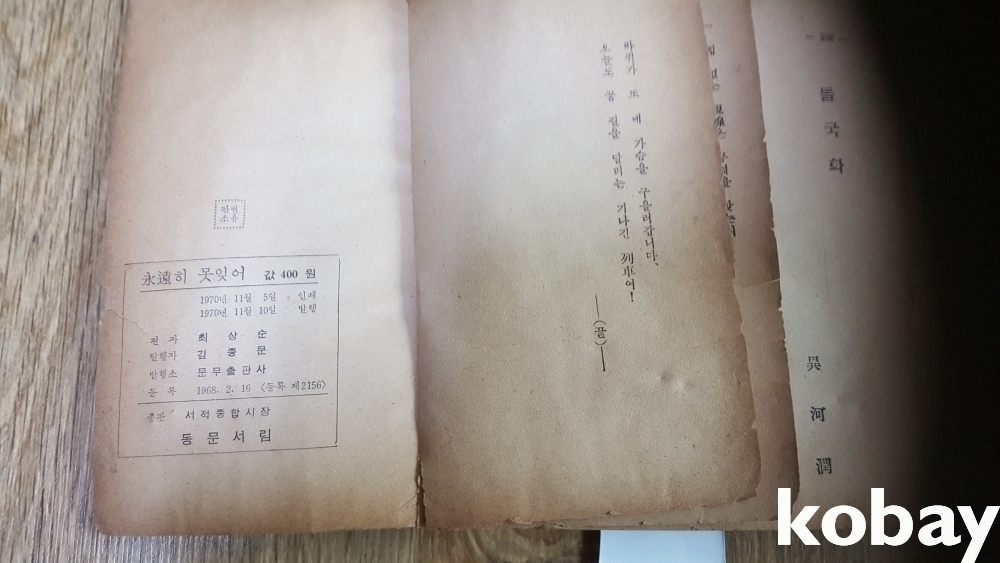 판권
소유
永遠히 못잊어 값 400 원
1970년 11월 5일 인쇄
1970년 11월 10일 발행
편 자 최 상 순
발행자 김 종 문
발행소 문무출판사
등 록 1968. 2. 16 〈등록 제2156〉
총판 서적종합시장
동 문 서 림
바퀴가 또 내 가슴을 구을러갑니다.
오늘도 꿈 길을 달리는 지나간 列車여!
―(끝)―
들국화
異河潤
kobay